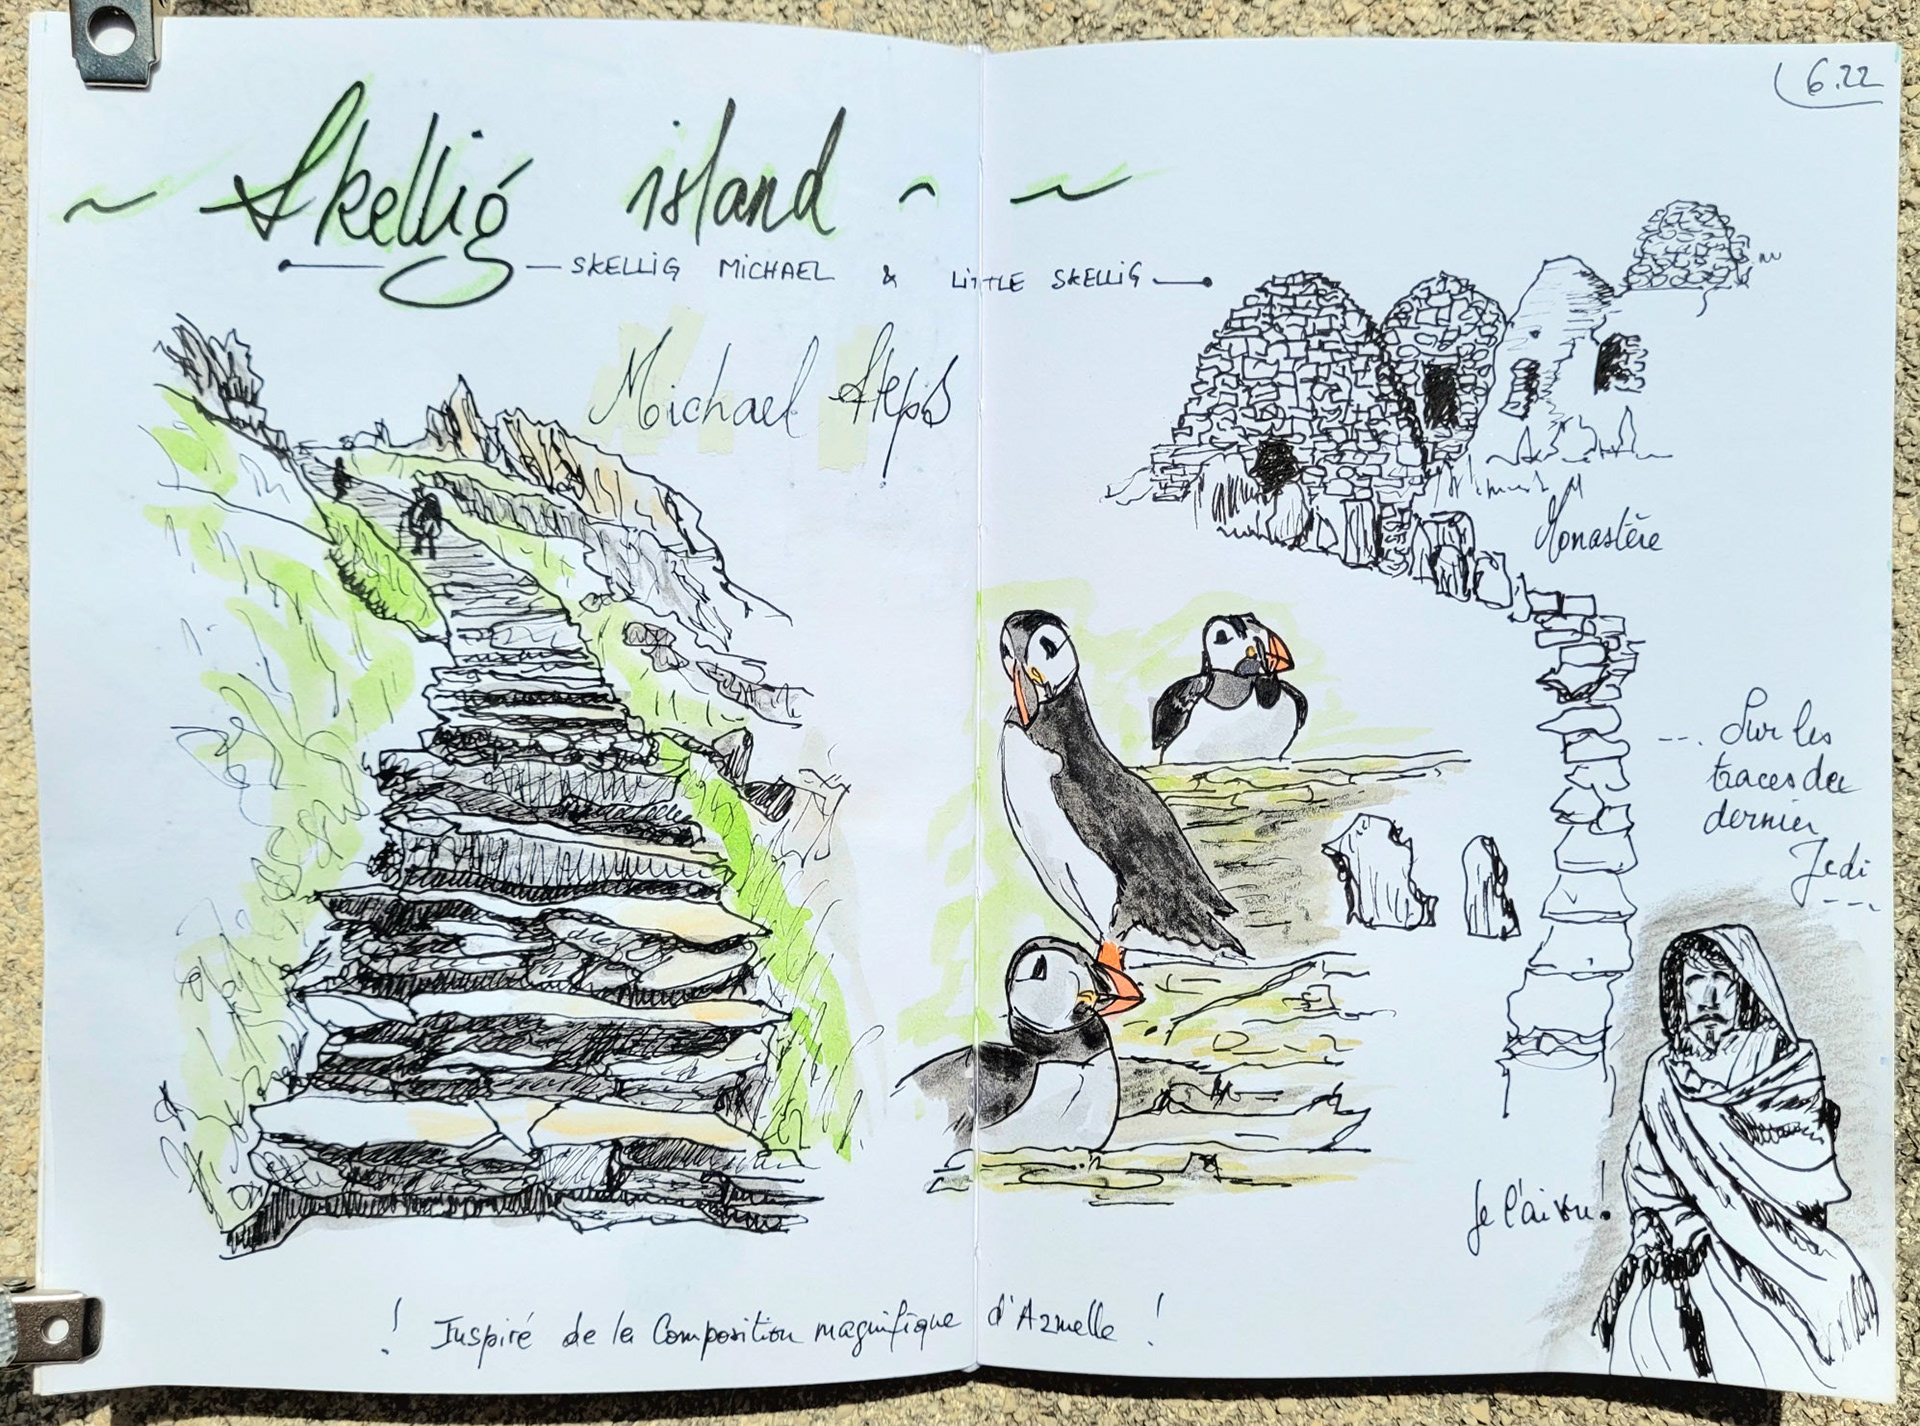 6.22
~ Skellig island ~ ~
SKELLIG MICHAEL & LITTLE SKELLIG
Michael Steps
Monastère
--. Sur les
traces du
dernier
Jedi
---
Je l'ai vu !
! Inspiré de la Composition magnifique d'Azmelle !